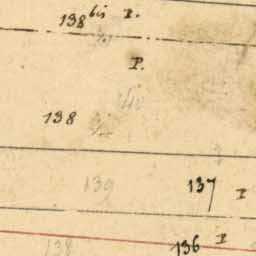 138 bis P.
P.
138
139 137 P
138 136 P